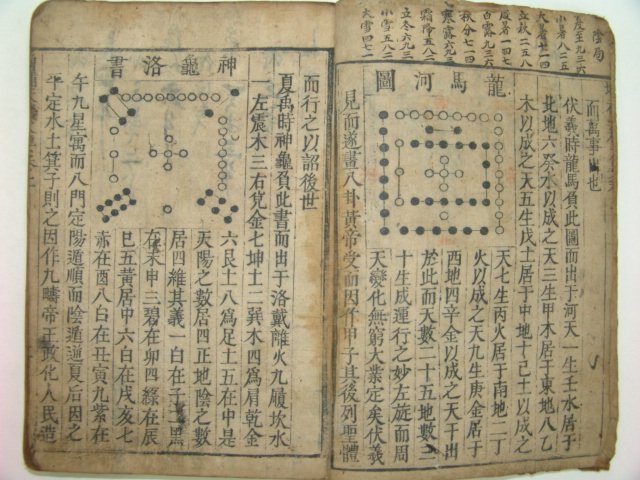 陰局
夏至九三六
小暑八二五
大暑七一四
立秋二五八
處暑一四七
白露九三六
秋分七一四
寒露六九三
霜降五八二
立冬六九三
小雪五八二
大雪四七一
而萬事出也
龍馬河圖
伏羲時龍馬負此圖而出于河天一生壬水居于
北地六癸水以成之天三生甲木居于東地八乙
木以成之天五生戊土居于中地十己土以成之
天七生丙火居于南地二丁
火以成之天九生庚金居于
西地四辛金以成之天干出
於此而天數二十五地數三
十生成運行之妙左旋而周
天變化無窮大業定矣伏羲
見而遂畫八卦黃帝受而因作甲子其後列聖體
而行之以詔後世
神龜洛書
夏禹時神龜負此書而出于洛戴離火九履坎水
一左震木三右兌金七坤土二巽木四為肩乾金
六艮土八為足土五在中是
天陽之數居四正地陰之數
居四維其義一白在子二黑
在未申三碧在卯四綠在辰
巳五黃居中六白在戌亥七
赤在酉八白在丑寅九紫在
午九星寓而八門定陽遁順而陰遁逆夏后因之
平定水土箕子則之因作九疇帝王政化人民造